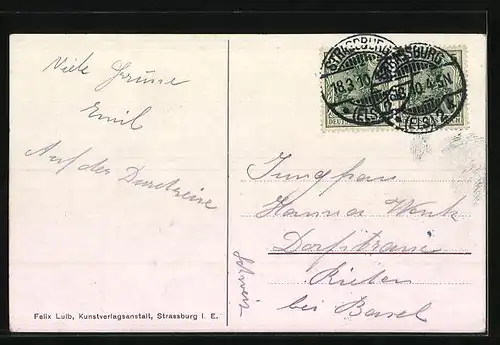 Viele Grüsse
Emil
Auf der Durchreise
STRASSBURG
18.3.10
(ELS.)
STRASSBURG
(ELS.)
Jungfrau
Hanna Wenk
Dorfstrasse
Riehen
bei Basel
Schweiz
Felix Luib, Kunstverlagsanstalt, Strassburg I. E.